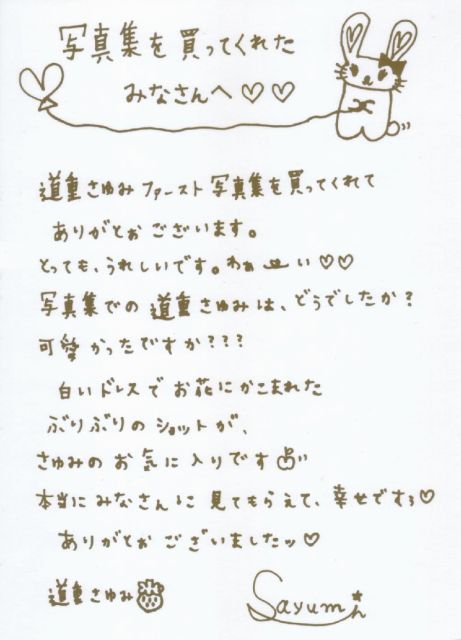 写真集を買ってくれた
みなさんへ♡♡
道重さゆみファースト写真集を買ってくれて
ありがとおございます。
とっても、うれしいです。わぁーい♡♡
写真集での道重さゆみは、どうでしたか?
可愛かったですか???
白いドレスでお花にかこまれた
ぶりぶりのショットが、
さゆみのお気に入りです
本当にみなさんに見てもらえて、幸せですぅ♡
ありがとおございましたッ♡
道重さゆみ
Sayumin